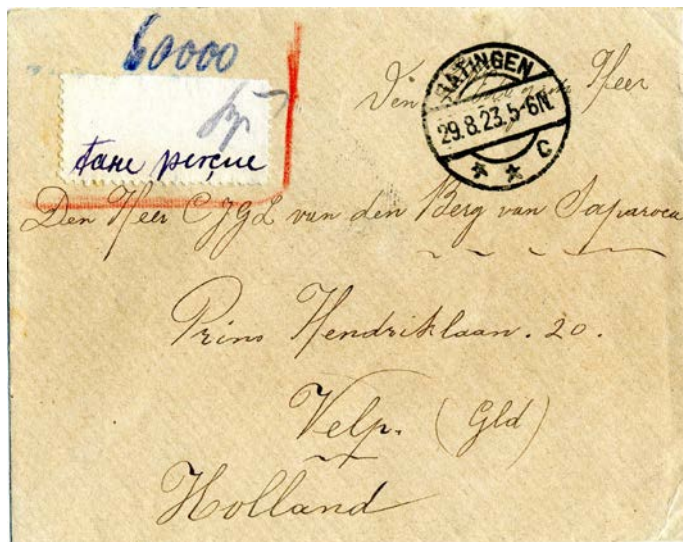 60000
taxe perçue
Den Heer
RATINGEN
29.8.23.5-6N.
* * C
Den Heer C J G L van den Berg van Saparoea
Prins Hendriklaan. 20.
Velp. (Gld)
Holland